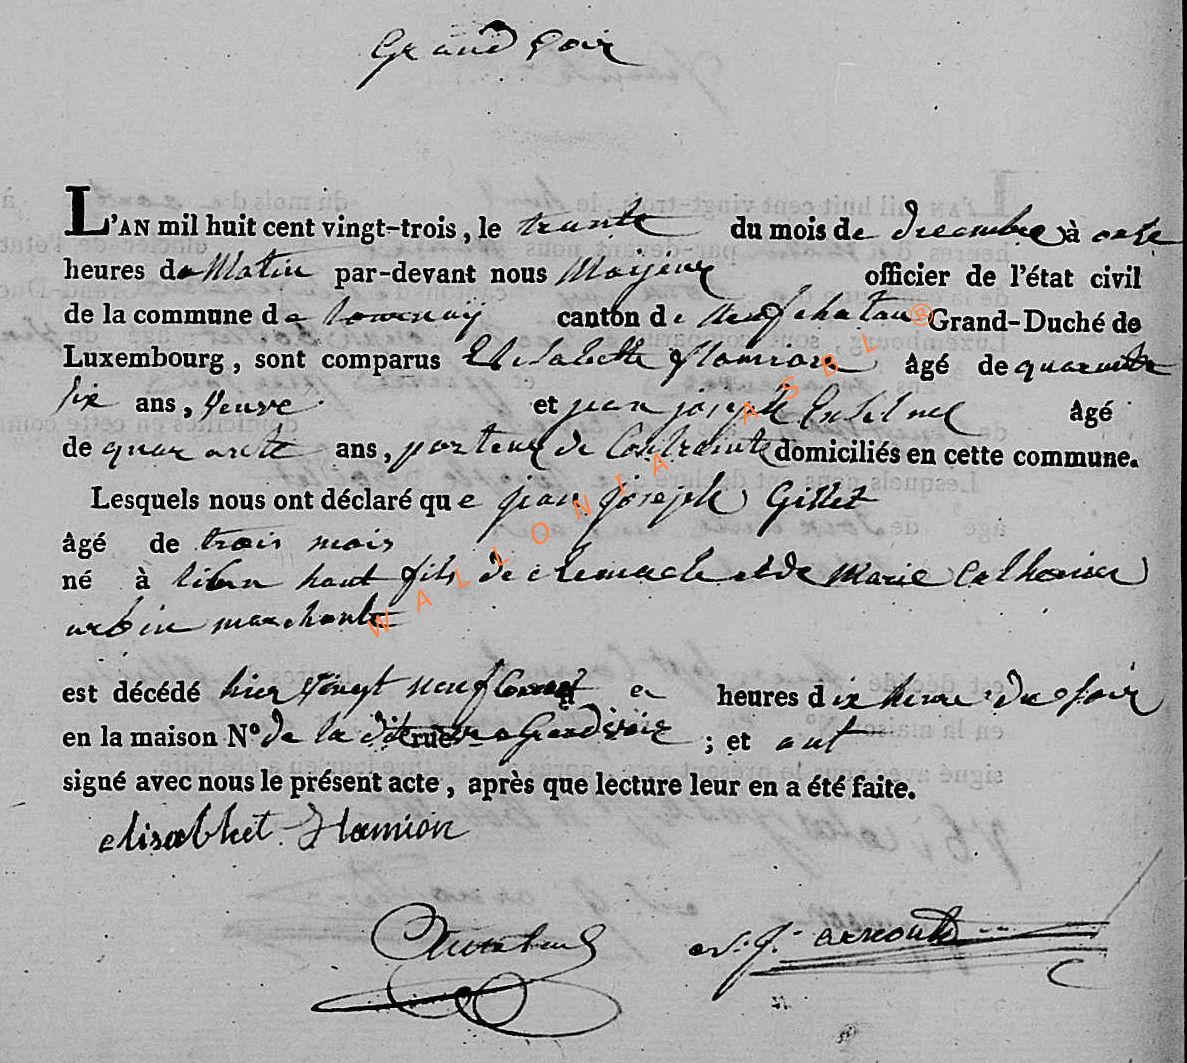 Grand voir
L'AN mil huit cent vingt-trois, le trente du mois de decembre à onse
heures du Matin par-devant nous Mayeur officier de l'état civil
de la commune de tournay canton de neufchateau Grand-Duché de
Luxembourg, sont comparus Elisabette flamion âgé de quarante
six ans, veuve et jean joseph Enselme âgé
de quarante ans, porteur de Contrainte domiciliés en cette commune.
Lesquels nous ont déclaré que jean joseph Gillet
âgé de trois mois
né à haut fils de et de Marie Catherine
urbin marchante
est décédé hier vingt neuf heures dix heure du soir
en la maison N° de la dite rue Grandvoir ; et ont
signé avec nous le présent acte, après que lecture leur en a été faite.
elisabhet flamion
arnould
WALLONIA ASBL ®